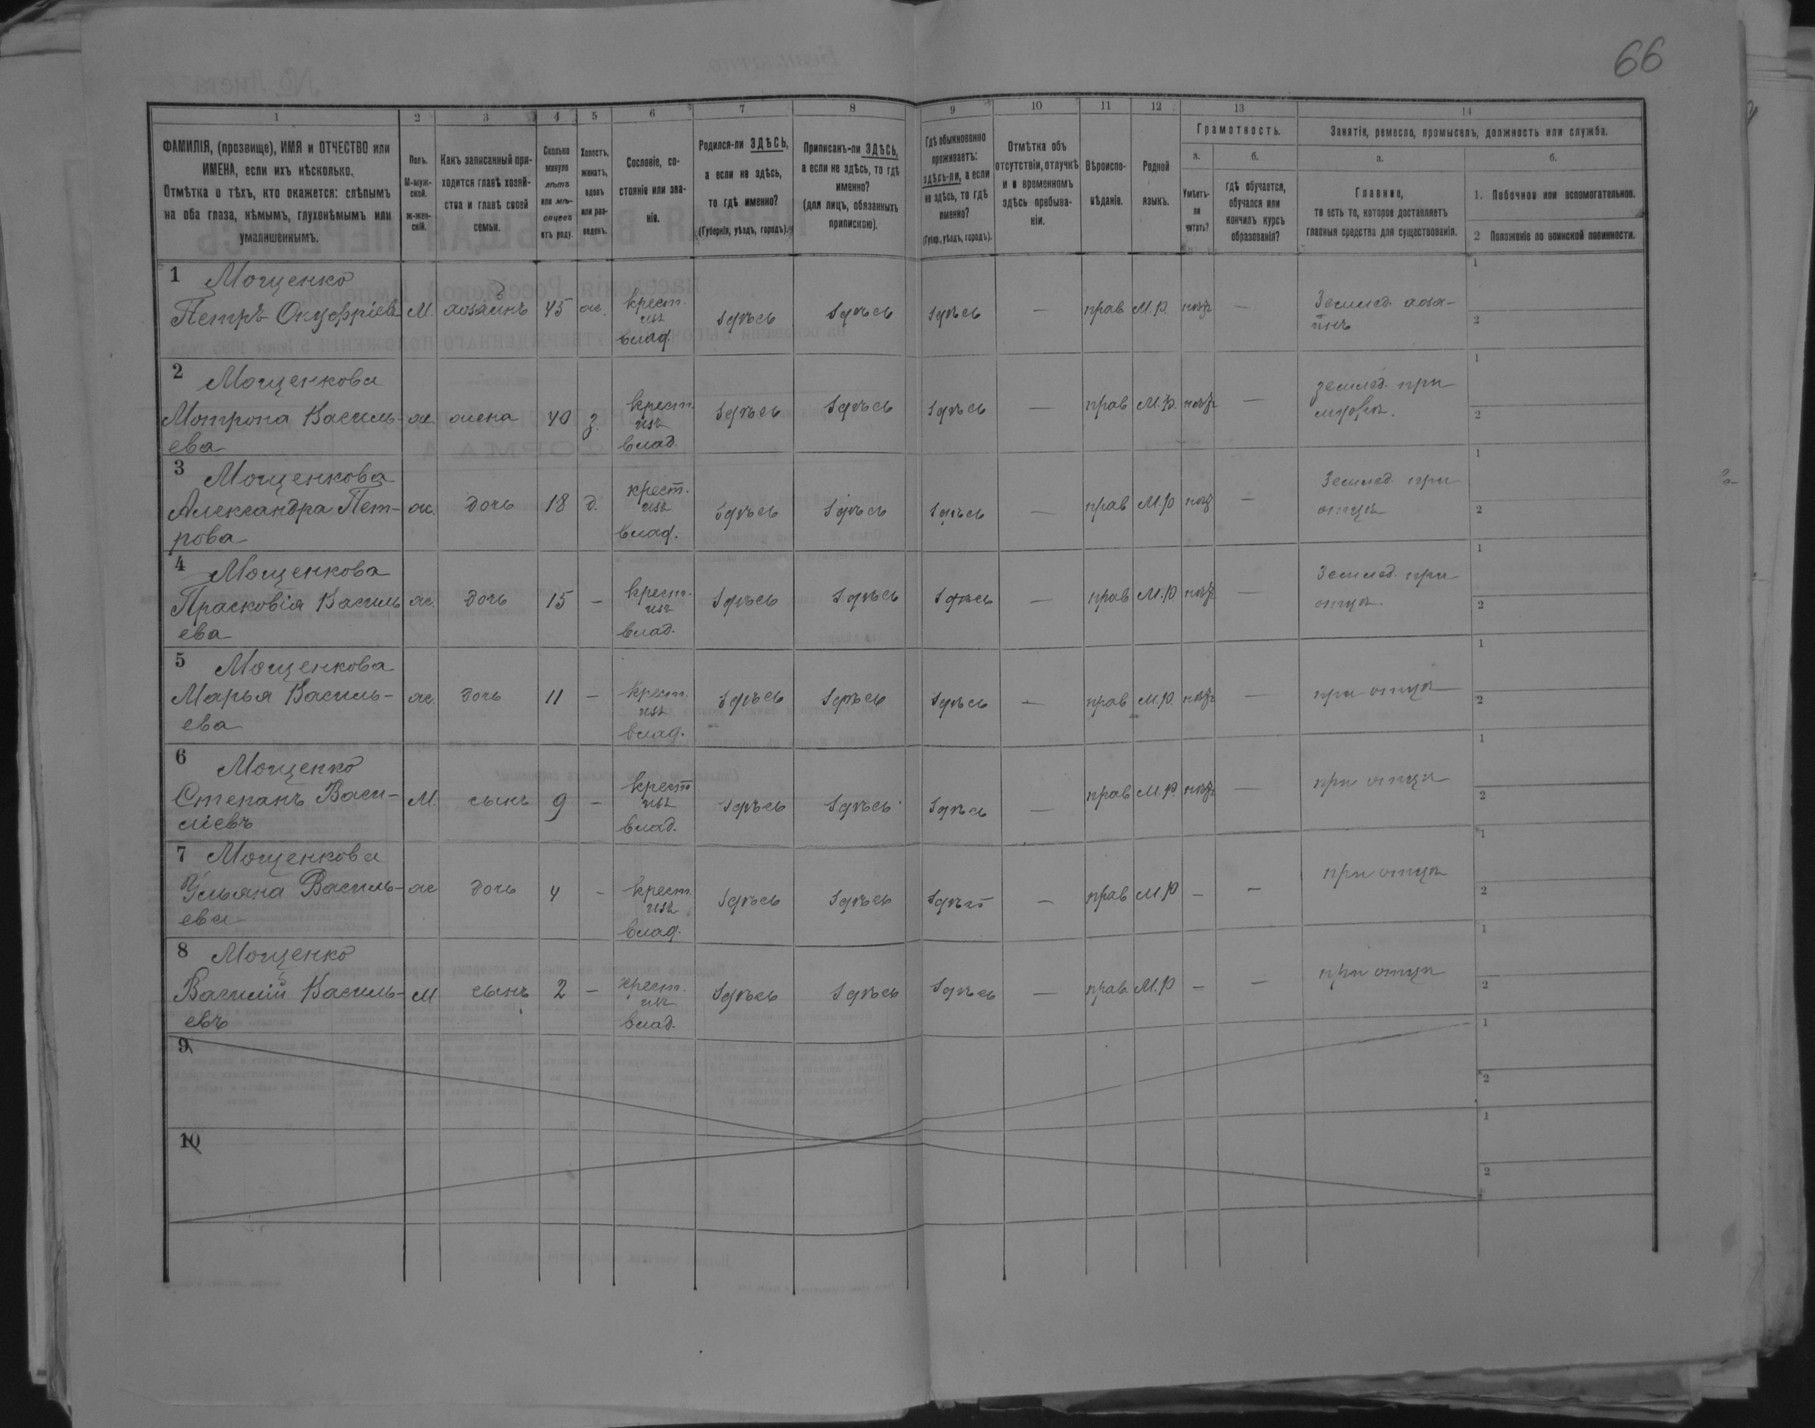 66
1 2 3 4 5 6 7 8 9 10 11 12 13 14
ФАМИЛІЯ, (прозвище), ИМЯ и ОТЧЕСТВО или
ИМЕНА, если ихъ нѣсколько.
Отмѣтка о тѣхъ, кто окажется: слѣпымъ
на оба глаза, нѣмымъ, глухонѣмымъ или
умалишеннымъ.
Полъ.
М-муж-
ской.
ж-жен-
скій.
Какъ записанный при-
ходится главѣ хозяй-
ства и главѣ своей
семьи.
Сколько
минуло
лѣтъ
или мѣ-
сяцевъ
отъ роду.
Холостъ,
женатъ,
вдовъ
или раз-
веденъ.
Сословіе, со-
стояніе или зва-
ніе.
Родился-ли ЗДѢСЬ,
а если не здѣсь,
то гдѣ именно?
(Губернія, уѣздъ, городъ).
Приписанъ-ли ЗДѢСЬ,
а если не здѣсь, то гдѣ
именно?
(для лицъ, обязанныхъ
припискою).
Гдѣ обыкновенно
проживаетъ:
здѣсь-ли, а если
не здѣсь, то гдѣ
именно?
(Губер., уѣздъ, городъ).
Отмѣтка объ
отсутствіи, отлучкѣ
и о временномъ
здѣсь пребыва-
ніи.
Вѣроиспо-
вѣданіе.
Родной
языкъ.
Грамотность.
а.
Умѣетъ-
ли
читать?
б.
гдѣ обучается,
обучался или
кончилъ курсъ
образованія?
Занятія, ремесло, промыселъ, должность или служба.
а.
Главное,
то есть то, которое доставляетъ
главныя средства для существованія.
б.
1. Побочное или вспомогательное.
2 Положеніе по воинской повинности.
1 Мощенко
Петръ Онуфріевъ М. хозяинъ 45 ж. крест. изъ влад. здѣсь здѣсь здѣсь — прав М.Р. — Землед. хозя-
инъ
1
2
2 Мощенкова
Мотрона Василь- ж. жена 40 з. крест. изъ влад. здѣсь здѣсь здѣсь — прав М.Р. — землед. при
ева
1
2
3 Мощенкова
Александра Пет- ж. дочь 18 д. крест. изъ влад. здѣсь здѣсь здѣсь — прав М.Р — Землед. при
рова отцѣ
1
2
4 Мощенкова
Прасковія Василь ж. дочь 15 — крест. изъ влад. здѣсь здѣсь здѣсь — прав М.Р — Землед. при
ева отцѣ
1
2
5 Мощенкова
Марья Василь- ж. дочь 11 — крест. изъ влад. здѣсь здѣсь здѣсь — прав М.Р. — при отцѣ
ева
1
2
6 Мощенко
Степанъ Васи- М. сынъ 9 — крест изъ влад. здѣсь здѣсь здѣсь — прав М.Р. — при отцѣ
ліевъ
1
2
7 Мощенкова
Ульяна Василь- ж дочь 4 — крест. изъ влад. здѣсь здѣсь — прав М.Р — — при отцѣ
ева
1
2
8 Мощенко
Василій Василь- М сынъ 2 — крест. изъ влад. здѣсь здѣсь здѣсь — прав. М.Р — — при отцѣ
евъ
1
2
9
1
2
10
1
2